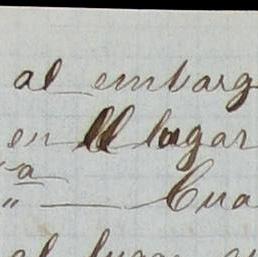 al embarg
en el lugar
"a
" — Cua
al lugar